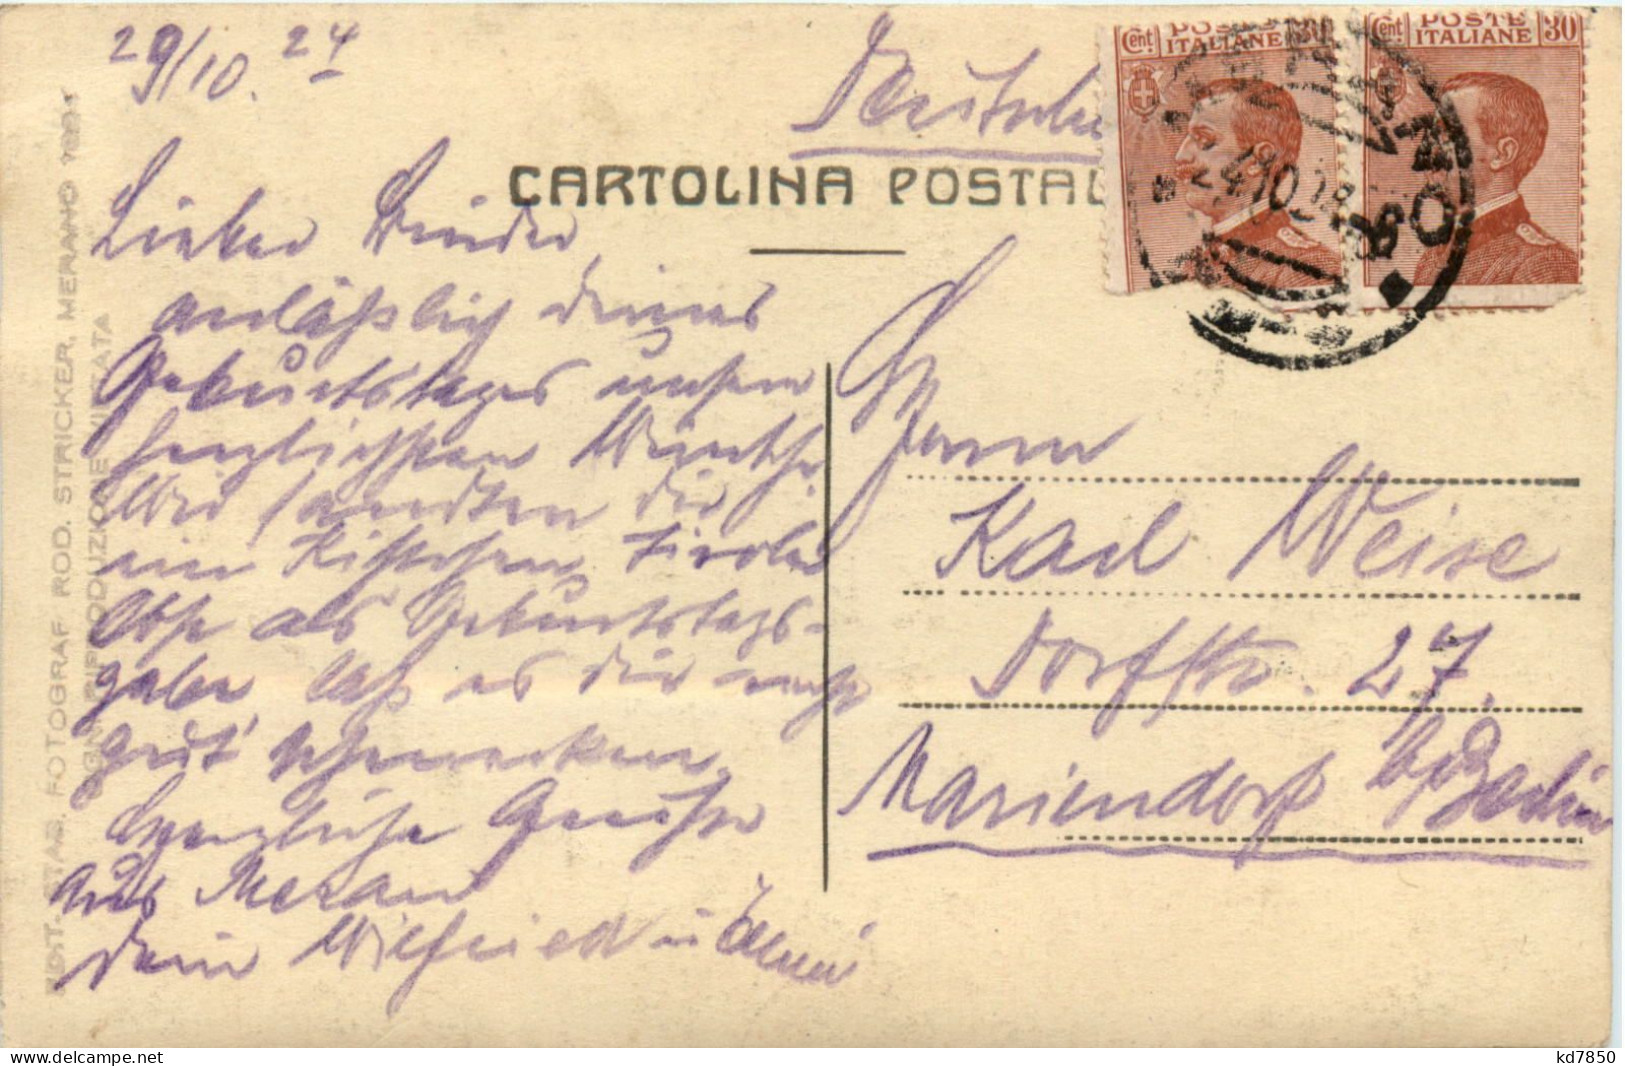 29/10. 24
Deutschl
CARTOLINA POSTAL
Cent. POSTE ITALIANE 30
Cent. POSTE ITALIANE 30
MERANO
Lieber Bruder,
anläßlich deines
Geburtstages unsern
herzlichsten Wünsche.
Wir sandten dir
ein Kistchen Tiroler
Obst als Geburtstags-
gabe laß es dir recht
gut schmecken.
Herzliche Grüße
aus Meran
dein Wilfried u.
Herrn
Karl Weise
Dorfstr. 27.
Mariendorf b/Berlin
EDIT-STAB. FOTOGRAF ROD. STRICKER, MERANO
OGNI RIPRODUZIONE VIETATA
www.delcampe.net
kd7850